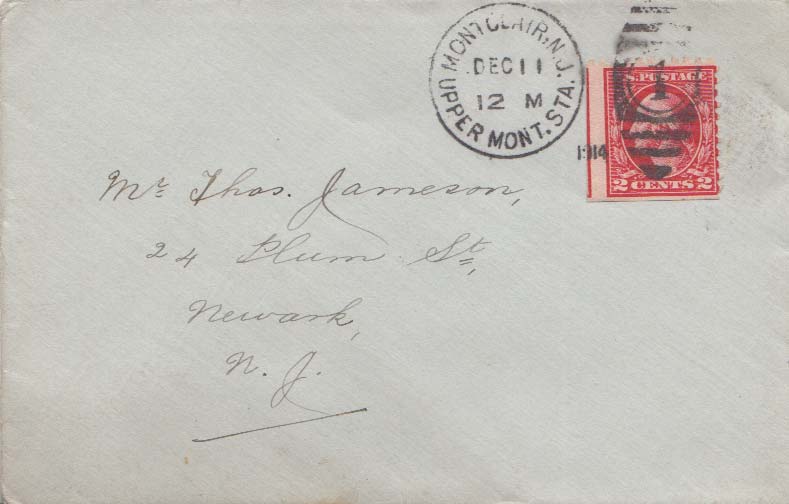 MONTCLAIR, N.J.
DEC 11
12 M
UPPER MONT. STA.
1914
1
U.S. POSTAGE
2 CENTS 2
Mr. Thos. Jameson,
24 Plum St.,
Newark,
N. J.